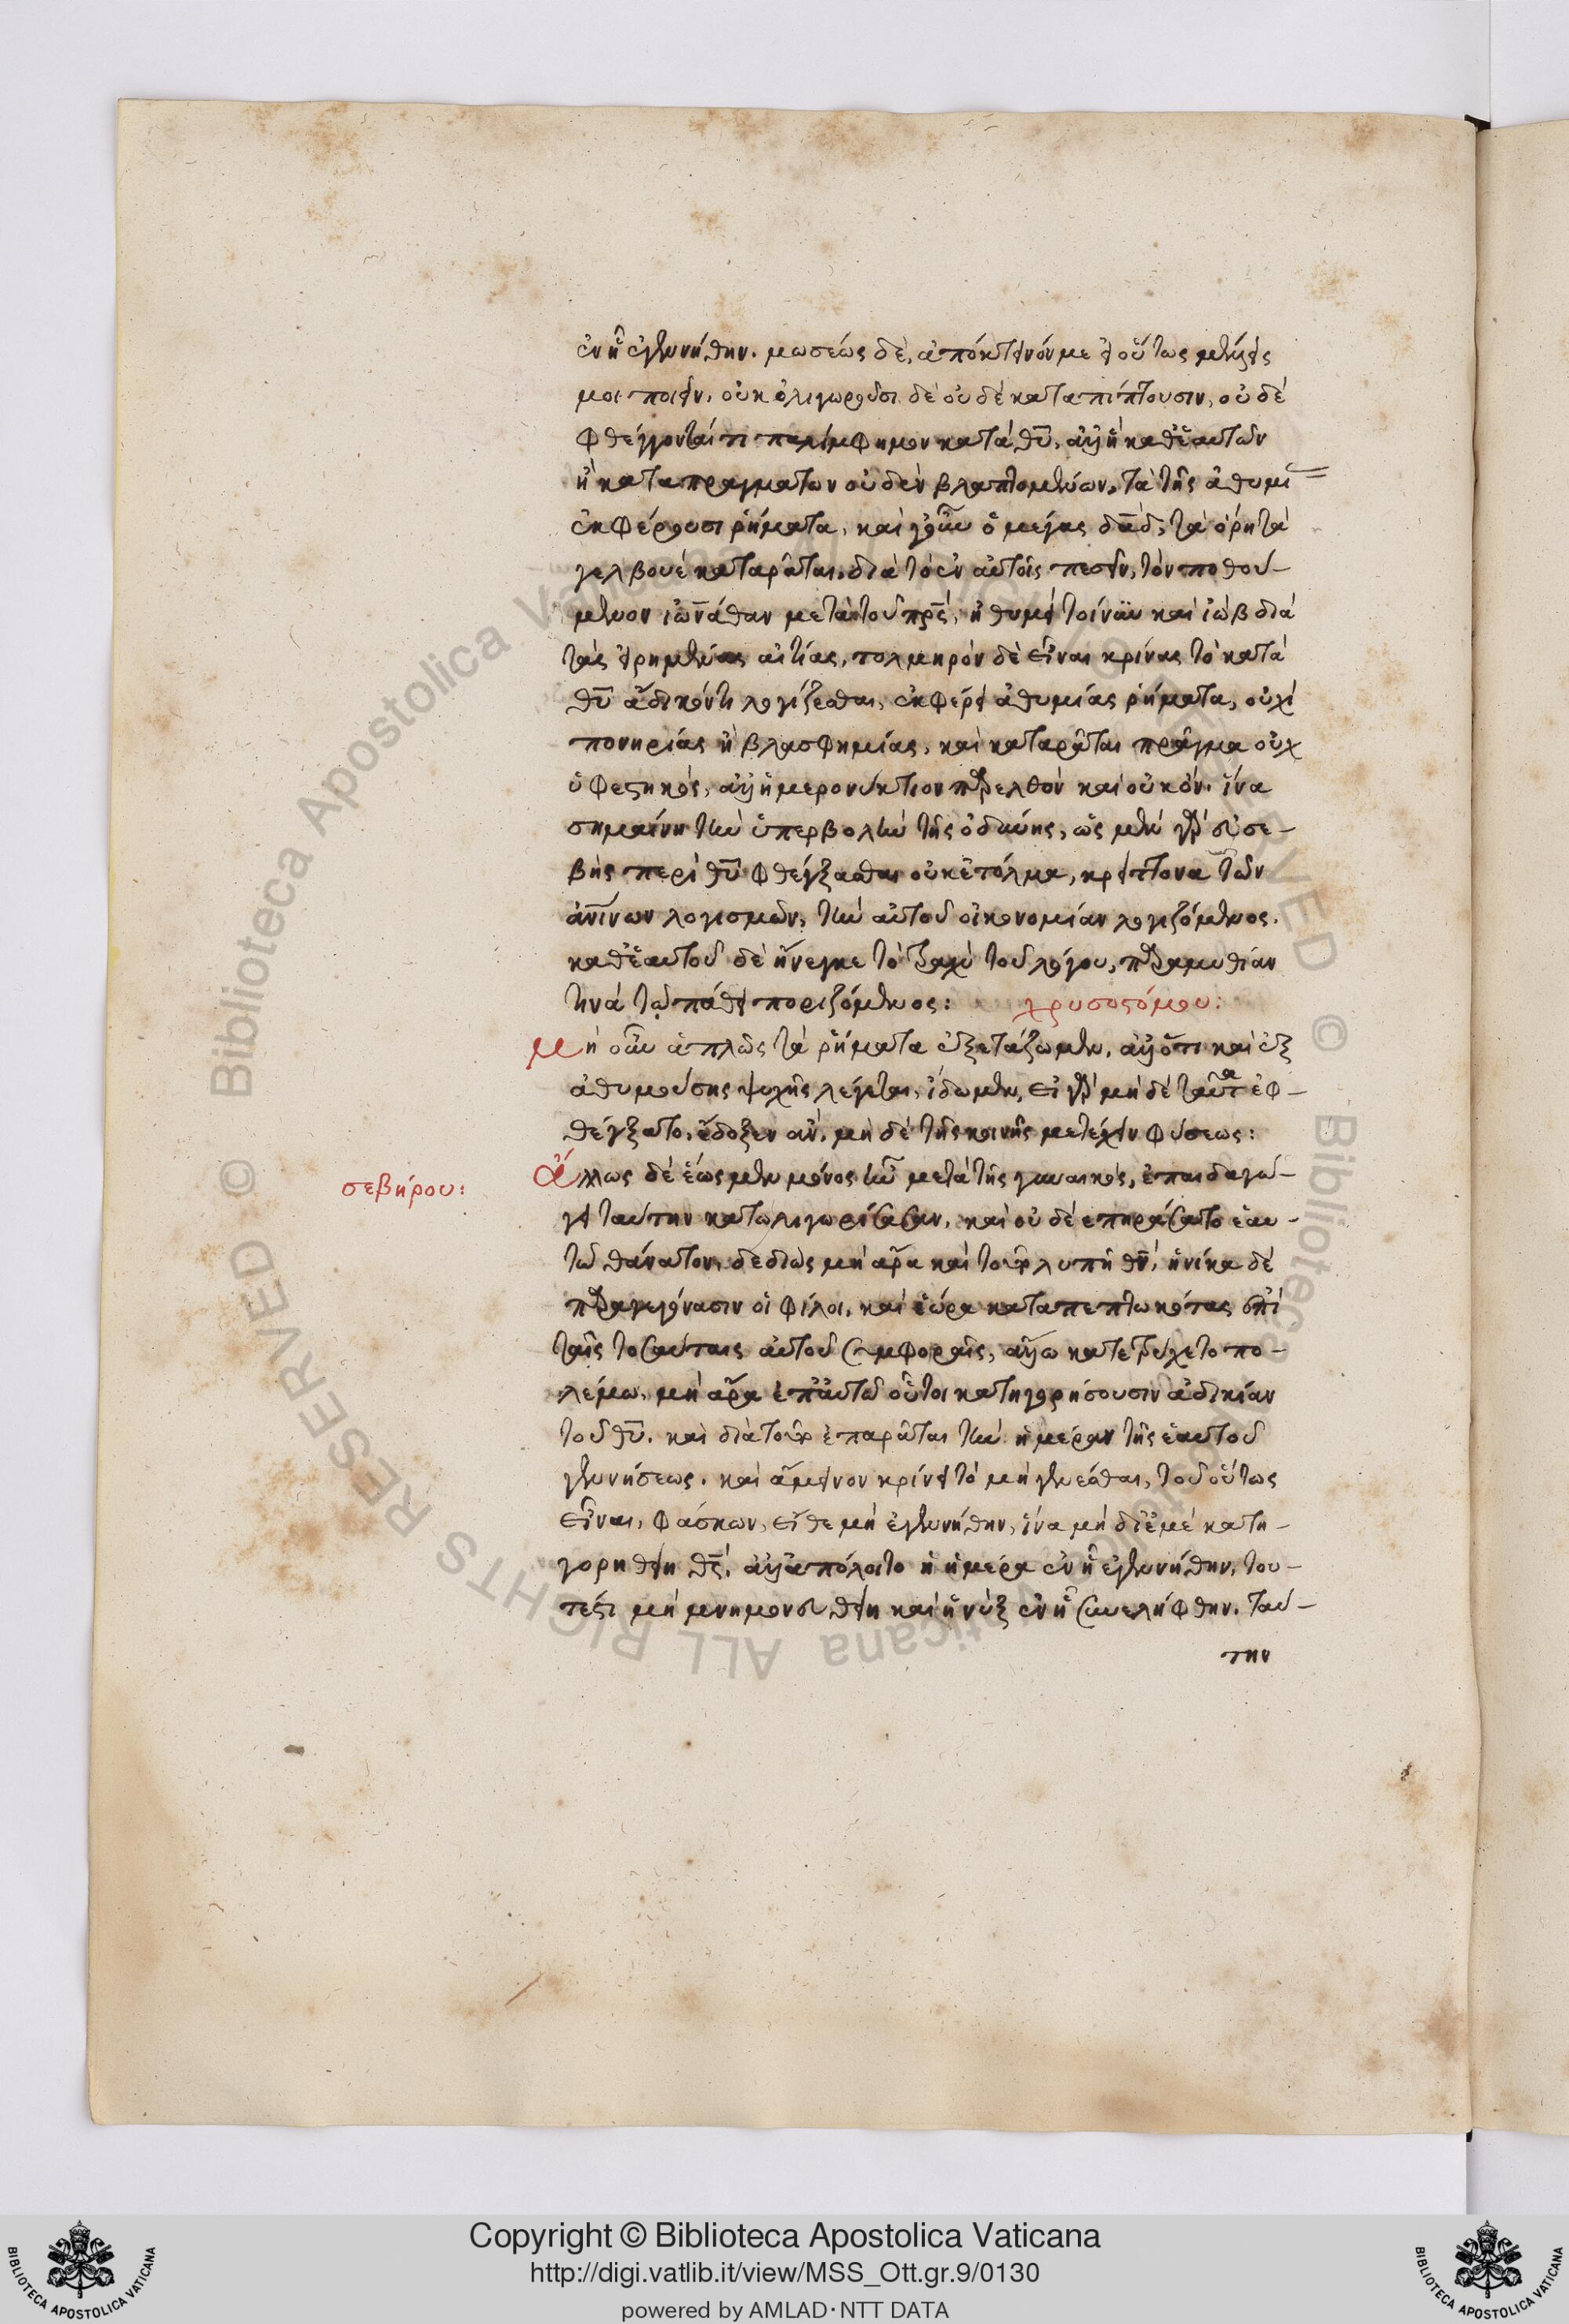 ἐν ᾗ ἐγεννήθην. μωσέως δὲ, ἀπόκτεινόν με εἰ οὕτως μέλλεις
μοι ποιεῖν. οὐκ ὀλιγωροῦσι δὲ οὐδὲ καταπίπτουσιν, οὐδὲ
φθέγγονταί τι παλίμφημον κατὰ θυ, ἀλλ' ἢ καθ' ἑαυτῶν
ἢ κατὰ πραγμάτων οὐδὲν βλαπτομένων, τὰ τῆς ἀθυμί
ἐκφέρουσι ῥήματα, καὶ γοῦν ὁ μέγας δαδ, τὰ ὄρη τὰ
γελβουὲ καταρᾶται, διὰ τὸ ἐν αὐτοῖς πεσεῖν, τὸν ποθού-
μενον ἰωνάθαν μετὰ τοῦ πρς, ἠθύμει τοίνυν καὶ ἰὼβ διὰ
τὰς εἰρημένας αἰτίας, τολμηρὸν δὲ εἶναι κρίνας τὸ κατὰ
θυ ἄδικόν τι λογίζεσθαι, ἐκφέρει ἀθυμίας ῥήματα, οὐχὶ
πονηρίας ἢ βλασφημίας, καὶ καταρᾶται πρᾶγμα οὐχ
ὑφεστηκός, ἀλλ' ἡμερονύκτιον παρελθὸν καὶ οὐκ ὄν. ἵνα
σημαίνη τὴν ὑπερβολὴν τῆς ὀδύνης, ὡς μὲν γὰρ εὐσε-
βὴς περὶ θυ φθέγξασθαι οὐκ ἐτόλμα, κρείττονα τῶν
ἀνίνων λογισμῶν, τὴν αὐτοῦ οἰκονομίαν λογιζόμενος.
καθ' ἑαυτοῦ δὲ ἤνεγκε τὸ τραχὺ τοῦ λόγου, παραμυθίαν
τινὰ τῷ πάθει ποριζόμενος: χρυσοστόμου:
μὴ οὖν ἁπλῶς τὰ ῥήματα ἐξετάζωμεν, ἀλλ' ὅτι καὶ ἐξ
ἀθυμούσης ψυχῆς λέγεται, ἴδωμεν, εἰ γὰρ μὴ δὲ ταῦτα ἐφ-
θέγξατο, ἔδοξεν ἂν, μὴ δὲ τῆς κοινῆς μετέχειν φύσεως:
σεβήρου:
ἄλλως δὲ ἕως μὲν μόνος ἦν μετὰ τῆς γυναικός, ἐπαιδαγώ-
γει ταύτην κατολιγωρήσασαν, καὶ οὐδὲ ἐπηράσατο ἑαυ-
τῷ θάνατον, δεδιὼς μὴ ἄρα καὶ τοῦτο λυπῆ θν, ἡνίκα δὲ
παραγεγόνασιν οἱ φίλοι, καὶ ἑώρα καταπεπτωκότας ἐπὶ
ταῖς τοσαύταις αὐτοῦ συμφοραῖς, ἄλλω κατετρύχετο πο-
λέμω, μὴ ἄρα ἐπ' αὐτῷ οὗτοι κατηγορήσουσιν ἀδικίαν
τοῦ θυ. καὶ διὰ τοῦτο ἐπαρᾶται τὴν ἡμέραν τῆς ἑαυτοῦ
γεννήσεως. καὶ ἄμεινον κρίνει τὸ μὴ γενέσθαι, τοῦ οὕτως
εἶναι, φάσκων, εἴθε μὴ ἐγεννήθην, ἵνα μὴ δι' ἐμὲ κατη-
γορηθείη θς, ἀλλ' ἀπόλοιτο ἡ ἡμέρα ἐν ᾗ ἐγεννήθην, του-
τέστι μὴ μνημονευθείη καὶ ἡ νὺξ ἐν ᾗ συνελήφθην. ταύ-
την
Copyright © Biblioteca Apostolica Vaticana
http://digi.vatlib.it/view/MSS_Ott.gr.9/0130
powered by AMLAD·NTT DATA
BIBLIOTECA APOSTOLICA VATICANA
BIBLIOTECA APOSTOLICA VATICANA
© Biblioteca Apostolica Vaticana
ALL RIGHTS RESERVED